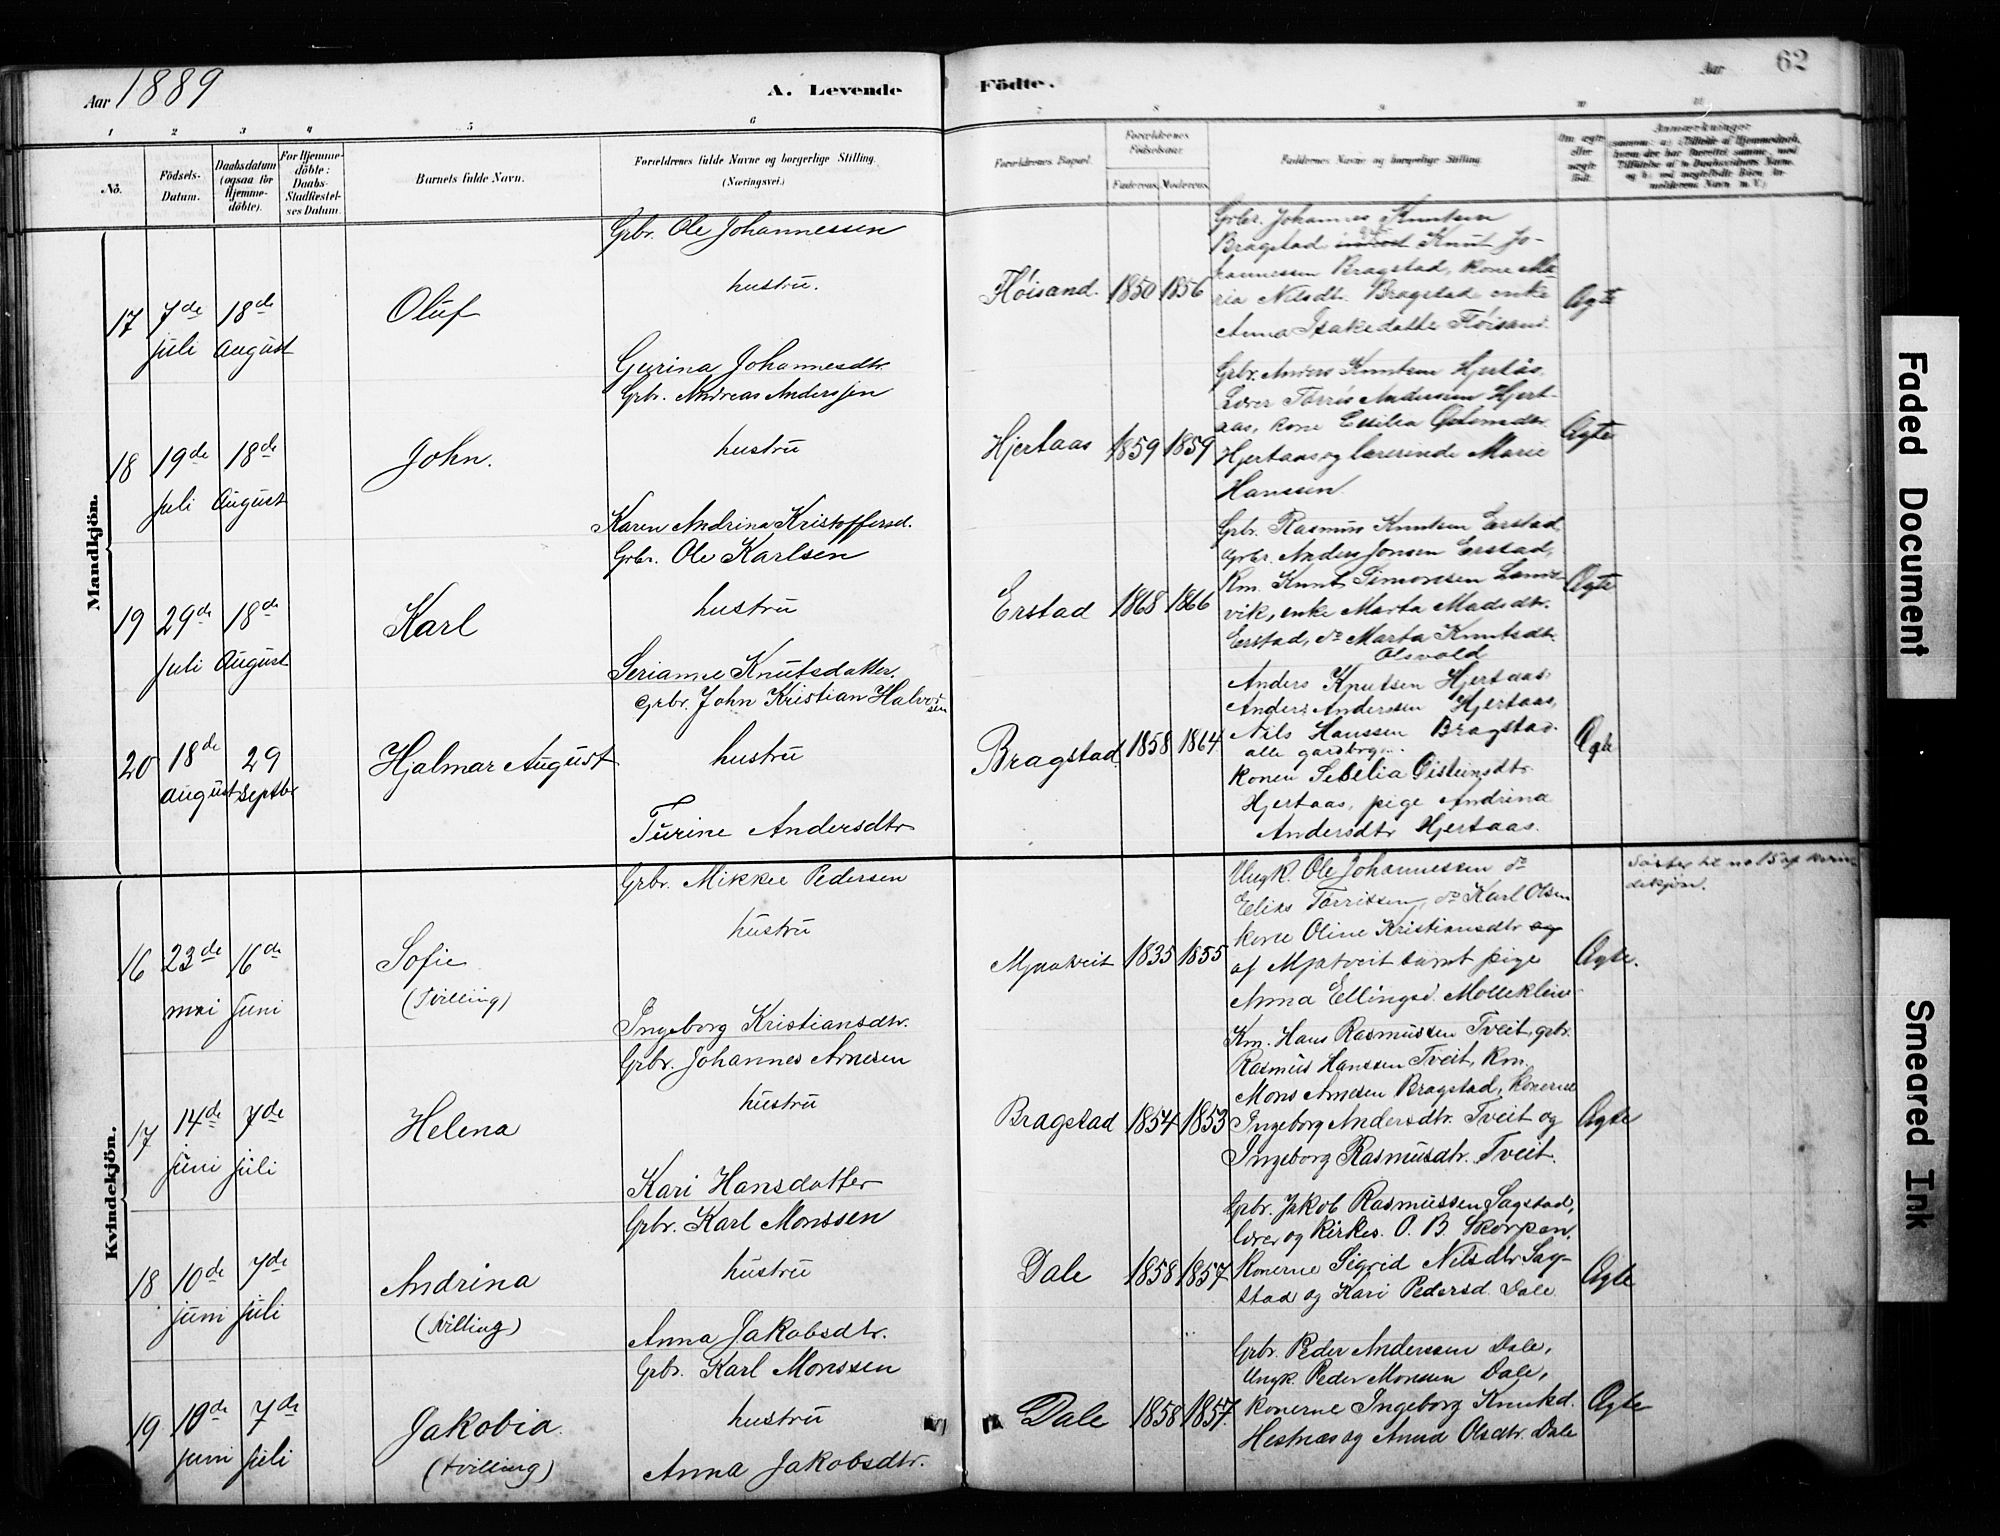 Aar 1889
A. Levende Födte.
Aar 62
1 2 3 4 5 6 7 8 9 10 11
No.
Födsels-Datum.
Daabsdatum (ogsaa for Hjemme-döbte).
For Hjemme-döbte: Daabs-Stadfæstel-ses Datum.
Barnets fulde Navn.
Forældrenes fulde Navne og borgerlige Stilling. (Næringsvei.)
Forældrenes Bopæl.
Forældrenes Födselsaar.
Faderens. Moderens.
Faddernes Navne og borgerlige Stilling.
Om ægte eller uægte födt.
Anmærkninger
Mandkjön.
17
7de juli
18de August
Oluf
Grbr. Ole Johannessen
hustru.
Gurina Johannesdtr.
Flöisand.
1850 1856
Grbr. Johannes Knutsen
Bragstad Knut Jo-
hannessen Bragstad, kone Ma-
ria Nilsdt. Bragstad enke
Anna Isaksdatte Flöisand.
Ægte
18
19de juli
18de August
John.
Grbr. Andreas Anderssen
hustru
Karen Andrina Kristoffersd.
Hjertaas
1859 1859
Grbr. Anders Knutsen Hjertås,
Lærer Torris Andersen Hjert-
aas, kone
Hjertaas og lærerinde Marie
Hanssen
Ægte
19
29de juli
18de August
Karl
Grbr. Ole Karlsen
hustru
Serianne Knutsdatter.
Erstad
1868 1866
Grbr. Rasmus Knutsen Erstad,
Grbr. Anders Jonsen Erstad,
Km. Knut Simonssen
vik, enke Marta Madsdtr.
Erstad, do Marta Knutsdt.
Olsvold
Ægte
20
18de august
29 septbr
Hjalmar August
Grbr. John Kristian Halvor-
sen
hustru
Turine Andersdtr
Bragstad
1858 1864
Anders Knutsen Hjertaas
Anders Anderssen Hjertaas,
Nils Hanssen Bragstad.
alle gardbrg...
konen Sebelia Oisteinsdtr.
Hjertaas, pige Andrina
Andersdtr Hjertaas.
Ægte
Kvindekjön.
16
23de mai
16de Juni
Sofie
(Tvilling)
Grbr. Mikkel Pedersen
hustru
Ingeborg Kristiansdtr.
Mjaatveit
1835 1855
Ungk. Ole Johannessen do
Elias Torrissen, do Karl Olsen
kone Oline Kristiansdtr og
af Mjatveit samt pige
Anna Ellingsd.
Ægte.
Söster til no 15 af kvin-
dekjön.
17
14de juni
7de juli
Helena
Grbr. Johannes Arnesen
hustru
Kari Hansdatter
Bragstad
1854 1853
Km. Hans Rasmussen Tveit, grbr.
Rasmus Hanssen Tveit, Km.
Mons Arnesen Bragstad, Konerne
Ingeborg Andersdtr. Tveit og
Ingeborg Rasmusdtr. Tveit.
Ægte
18
10de juni
7de juli
Andrina
(tvilling)
Grbr. Karl Monssen
hustru
Anna Jakobsdtr.
Dale
1858 1857
Grbr. Jakob Rasmussen Sagstad,
lærer og kirkes. O. B. Skorpen,
Konerne Sigrid Nilsdtr Sag-
stad og Kari Pedersd. Dale
Ægte
19
10de juni
7de juli
Jakobia.
(tvilling)
Grbr. Karl Monssen
hustru
Anna Jakobsdtr.
Dale
1858 1857.
Grbr. Peder Anderssen Dale,
Ungk. Peder Monsen Dale,
konerne Ingeborg Knutsd.
Hestnæs og Olsdtr. Dale
Ægte
Faded Document
Smeared Ink